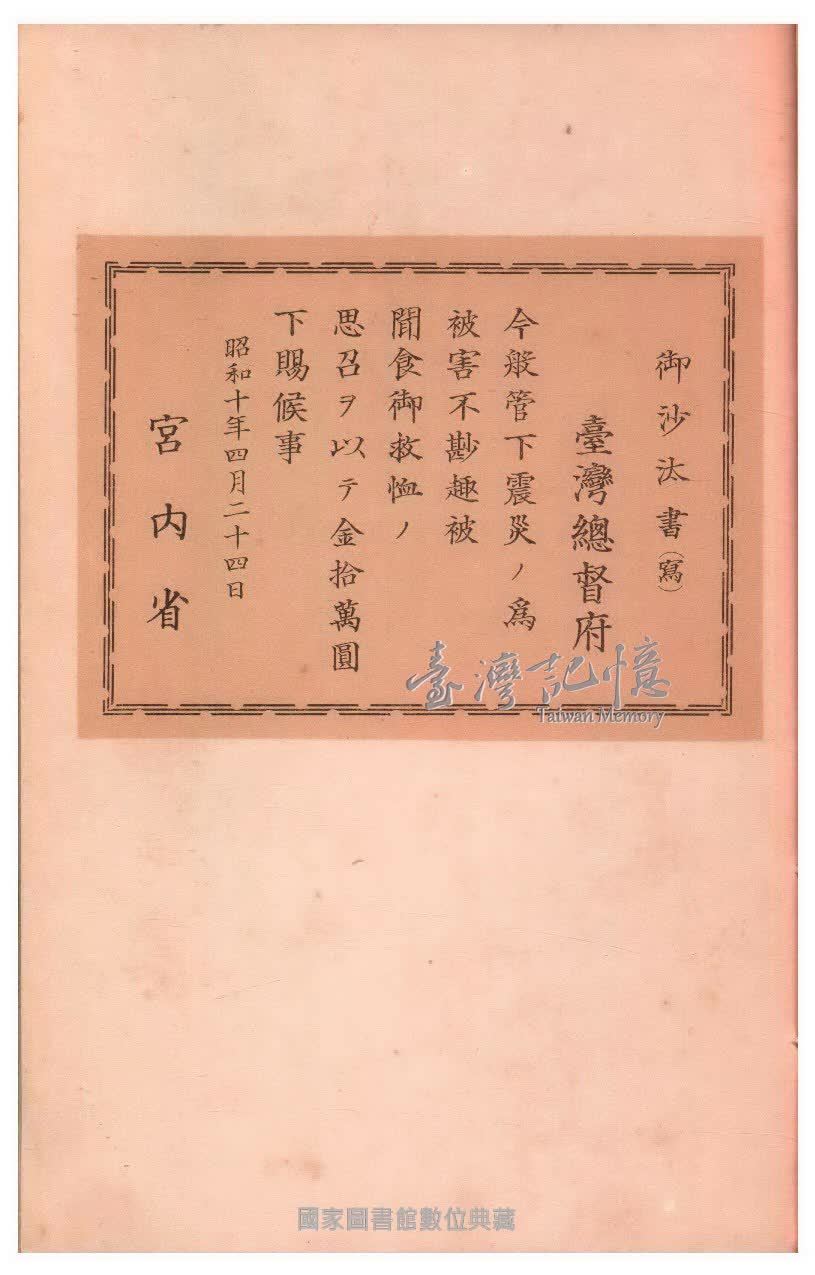 御沙汰書（寫）
臺灣總督府
今般管下震災ノ爲
被害不尠趣被
聞食御救恤ノ
思召ヲ以テ金拾萬圓
下賜候事
昭和十年四月二十四日
宮内省
臺灣記憶
Taiwan Memory
國家圖書館數位典藏